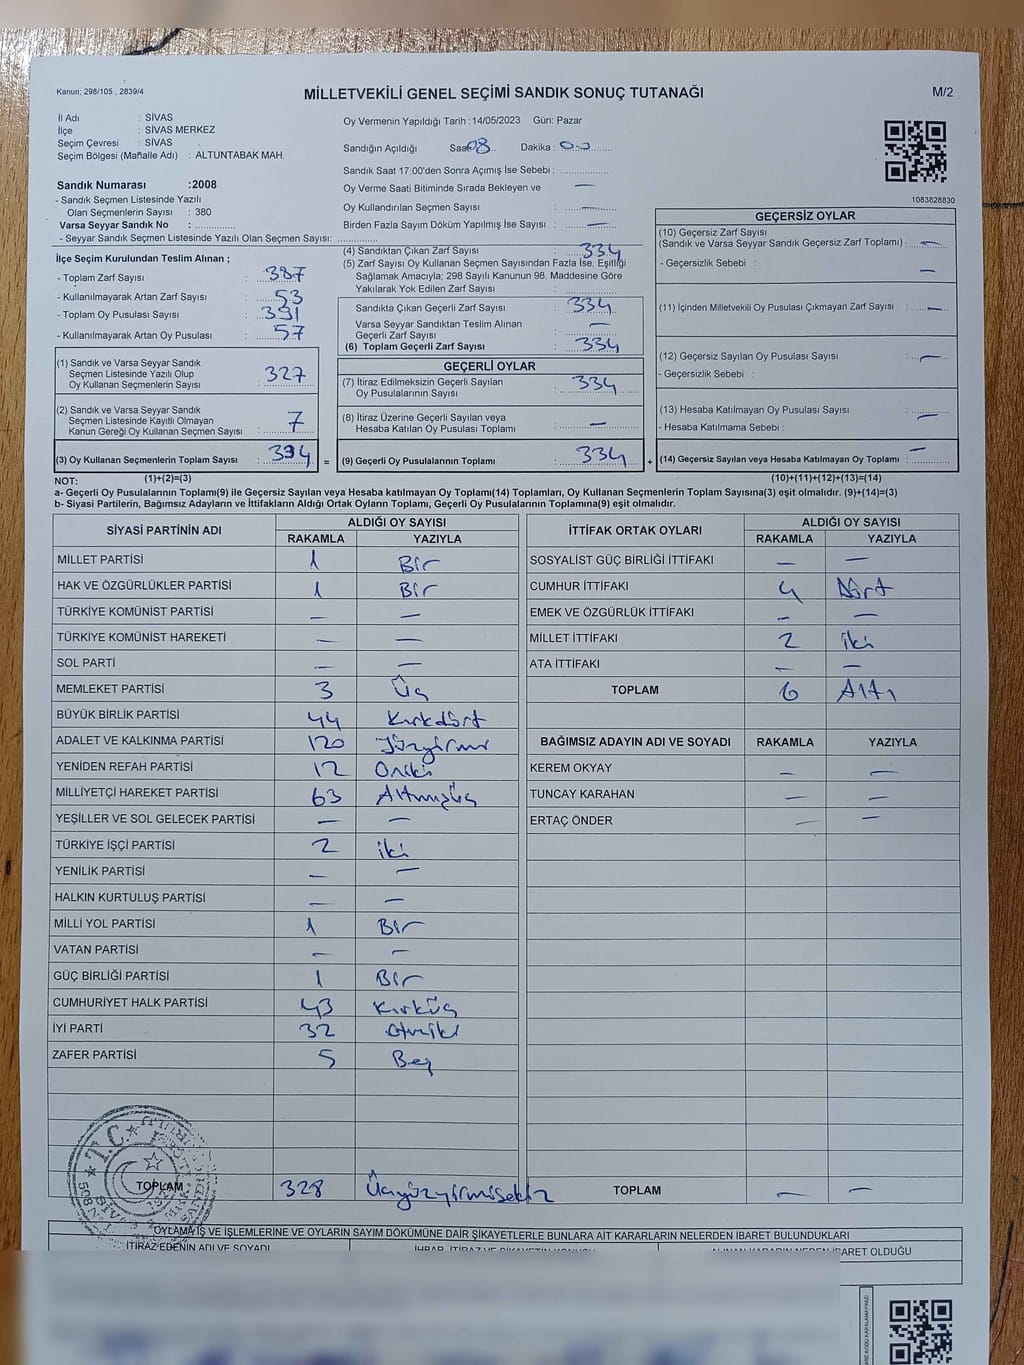 Kanun; 298/105 , 2839/4
MİLLETVEKİLİ GENEL SEÇİMİ SANDIK SONUÇ TUTANAĞI
M/2
İl Adı : SİVAS
İlçe : SİVAS MERKEZ
Seçim Çevresi : SİVAS
Seçim Bölgesi (Mahalle Adı) : ALTUNTABAK MAH.
Sandık Numarası :2008
- Sandık Seçmen Listesinde Yazılı
Olan Seçmenlerin Sayısı : 380
Varsa Seyyar Sandık No :
- Seyyar Sandık Seçmen Listesinde Yazılı Olan Seçmen Sayısı:
Oy Vermenin Yapıldığı Tarih :14/05/2023 Gün: Pazar
Sandığın Açıldığı Saat 08 Dakika : 00
Sandık Saat 17:00'den Sonra Açımış İse Sebebi :
Oy Verme Saati Bitiminde Sırada Bekleyen ve —
Oy Kullandırılan Seçmen Sayısı : —
Birden Fazla Sayım Döküm Yapılmış İse Sayısı : —
1083828830
İlçe Seçim Kurulundan Teslim Alınan ;
- Toplam Zarf Sayısı : 387
- Kullanılmayarak Artan Zarf Sayısı : 53
- Toplam Oy Pusulası Sayısı : 391
- Kullanılmayarak Artan Oy Pusulası : 57
(1) Sandık ve Varsa Seyyar Sandık
Seçmen Listesinde Yazılı Olup
Oy Kullanan Seçmenlerin Sayısı : 327
(2) Sandık ve Varsa Seyyar Sandık
Seçmen Listesinde Kayıtlı Olmayan
Kanun Gereği Oy Kullanan Seçmen Sayısı : 7
(3) Oy Kullanan Seçmenlerin Toplam Sayısı : 334 =
(4) Sandıktan Çıkan Zarf Sayısı : 334
(5) Zarf Sayısı Oy Kullanan Seçmen Sayısından Fazla İse, Eşitliği
Sağlamak Amacıyla; 298 Sayılı Kanunun 98. Maddesine Göre
Yakılarak Yok Edilen Zarf Sayısı :
Sandıkta Çıkan Geçerli Zarf Sayısı : 334
Varsa Seyyar Sandıktan Teslim Alınan
Geçerli Zarf Sayısı : —
(6) Toplam Geçerli Zarf Sayısı : 334
GEÇERLİ OYLAR
(7) İtiraz Edilmeksizin Geçerli Sayılan
Oy Pusulalarının Sayısı : 334
(8) İtiraz Üzerine Geçerli Sayılan veya
Hesaba Katılan Oy Pusulası Toplamı : —
(9) Geçerli Oy Pusulalarının Toplamı : 334 +
GEÇERSİZ OYLAR
(10) Geçersiz Zarf Sayısı
(Sandık ve Varsa Seyyar Sandık Geçersiz Zarf Toplamı) : —
- Geçersizlik Sebebi : —
(11) İçinden Milletvekili Oy Pusulası Çıkmayan Zarf Sayısı : —
(12) Geçersiz Sayılan Oy Pusulası Sayısı : —
- Geçersizlik Sebebi :
(13) Hesaba Katılmayan Oy Pusulası Sayısı : —
- Hesaba Katılmama Sebebi :
(14) Geçersiz Sayılan veya Hesaba Katılmayan Oy Toplamı : —
NOT: (1)+(2)=(3) (10)+(11)+(12)+(13)=(14)
a- Geçerli Oy Pusulalarının Toplamı(9) ile Geçersiz Sayılan veya Hesaba katılmayan Oy Toplamı(14) Toplamları, Oy Kullanan Seçmenlerin Toplam Sayısına(3) eşit olmalıdır. (9)+(14)=(3)
b- Siyasi Partilerin, Bağımsız Adayların ve İttifakların Aldığı Ortak Oyların Toplamı, Geçerli Oy Pusulalarının Toplamına(9) eşit olmalıdır.
SİYASİ PARTİNİN ADI ALDIĞI OY SAYISI
RAKAMLA YAZIYLA
MİLLET PARTİSİ 1 Bir
HAK VE ÖZGÜRLÜKLER PARTİSİ 1 Bir
TÜRKİYE KOMÜNİST PARTİSİ — —
TÜRKİYE KOMÜNİST HAREKETİ — —
SOL PARTİ — —
MEMLEKET PARTİSİ 3 Üç
BÜYÜK BİRLİK PARTİSİ 44 Kırkdört
ADALET VE KALKINMA PARTİSİ 120 Yüzyirmi
YENİDEN REFAH PARTİSİ 12 Oniki
MİLLİYETÇİ HAREKET PARTİSİ 63 Altmışüç
YEŞİLLER VE SOL GELECEK PARTİSİ — —
TÜRKİYE İŞÇİ PARTİSİ 2 iki
YENİLİK PARTİSİ — —
HALKIN KURTULUŞ PARTİSİ — —
MİLLİ YOL PARTİSİ 1 Bir
VATAN PARTİSİ — —
GÜÇ BİRLİĞİ PARTİSİ 1 Bir
CUMHURİYET HALK PARTİSİ 43 Kırküç
İYİ PARTİ 32 Otuziki
ZAFER PARTİSİ 5 Beş
TOPLAM 328 Üçyüzyirmisekiz
T.C.
İTTİFAK ORTAK OYLARI ALDIĞI OY SAYISI
RAKAMLA YAZIYLA
SOSYALİST GÜÇ BİRLİĞİ İTTİFAKI — —
CUMHUR İTTİFAKI 4 Dört
EMEK VE ÖZGÜRLÜK İTTİFAKI — —
MİLLET İTTİFAKI 2 iki
ATA İTTİFAKI — —
TOPLAM 6 Altı
BAĞIMSIZ ADAYIN ADI VE SOYADI RAKAMLA YAZIYLA
KEREM OKYAY — —
TUNCAY KARAHAN — —
ERTAÇ ÖNDER — —
TOPLAM — —
OYLAMA İŞ VE İŞLEMLERİNE VE OYLARIN SAYIM DÖKÜMÜNE DAİR ŞİKAYETLERLE BUNLARA AİT KARARLARIN NELERDEN İBARET BULUNDUKLARI
İTİRAZ EDENİN ADI VE SOYADI İHBAR, İTİRAZ VE ŞİKAYETİN KONUSU ALINAN KARARIN NEDEN İBARET OLDUĞU